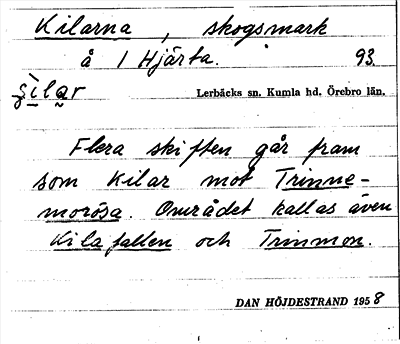 Kilarna, skogsmark
å 1 Hjärta. 93.
şìlar Lerbäcks sn. Kumla hd. Örebro län.
Flera skiften går fram
som kilar mot Trinne-
morösa. Området kallas även
Kilafallen och Trinmon.
DAN HÖJDESTRAND 1958